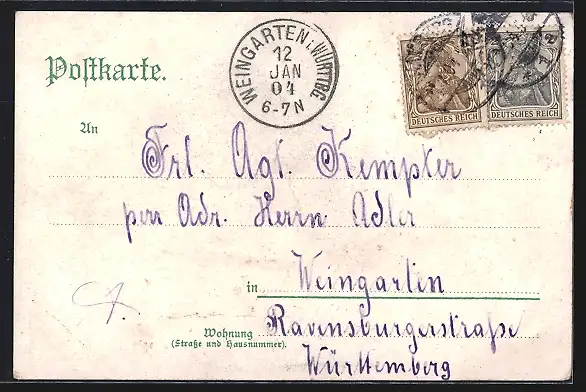 Postkarte.
WEINGARTEN i. WÜRTTBG.
12
JAN
04
6-7N
DEUTSCHES REICH
DEUTSCHES REICH
An
Frl. Agt. Kempter
per Adr. Herrn Adler
in Weingarten
Wohnung Ravensburgerstraße
(Straße und Hausnummer).
Württemberg